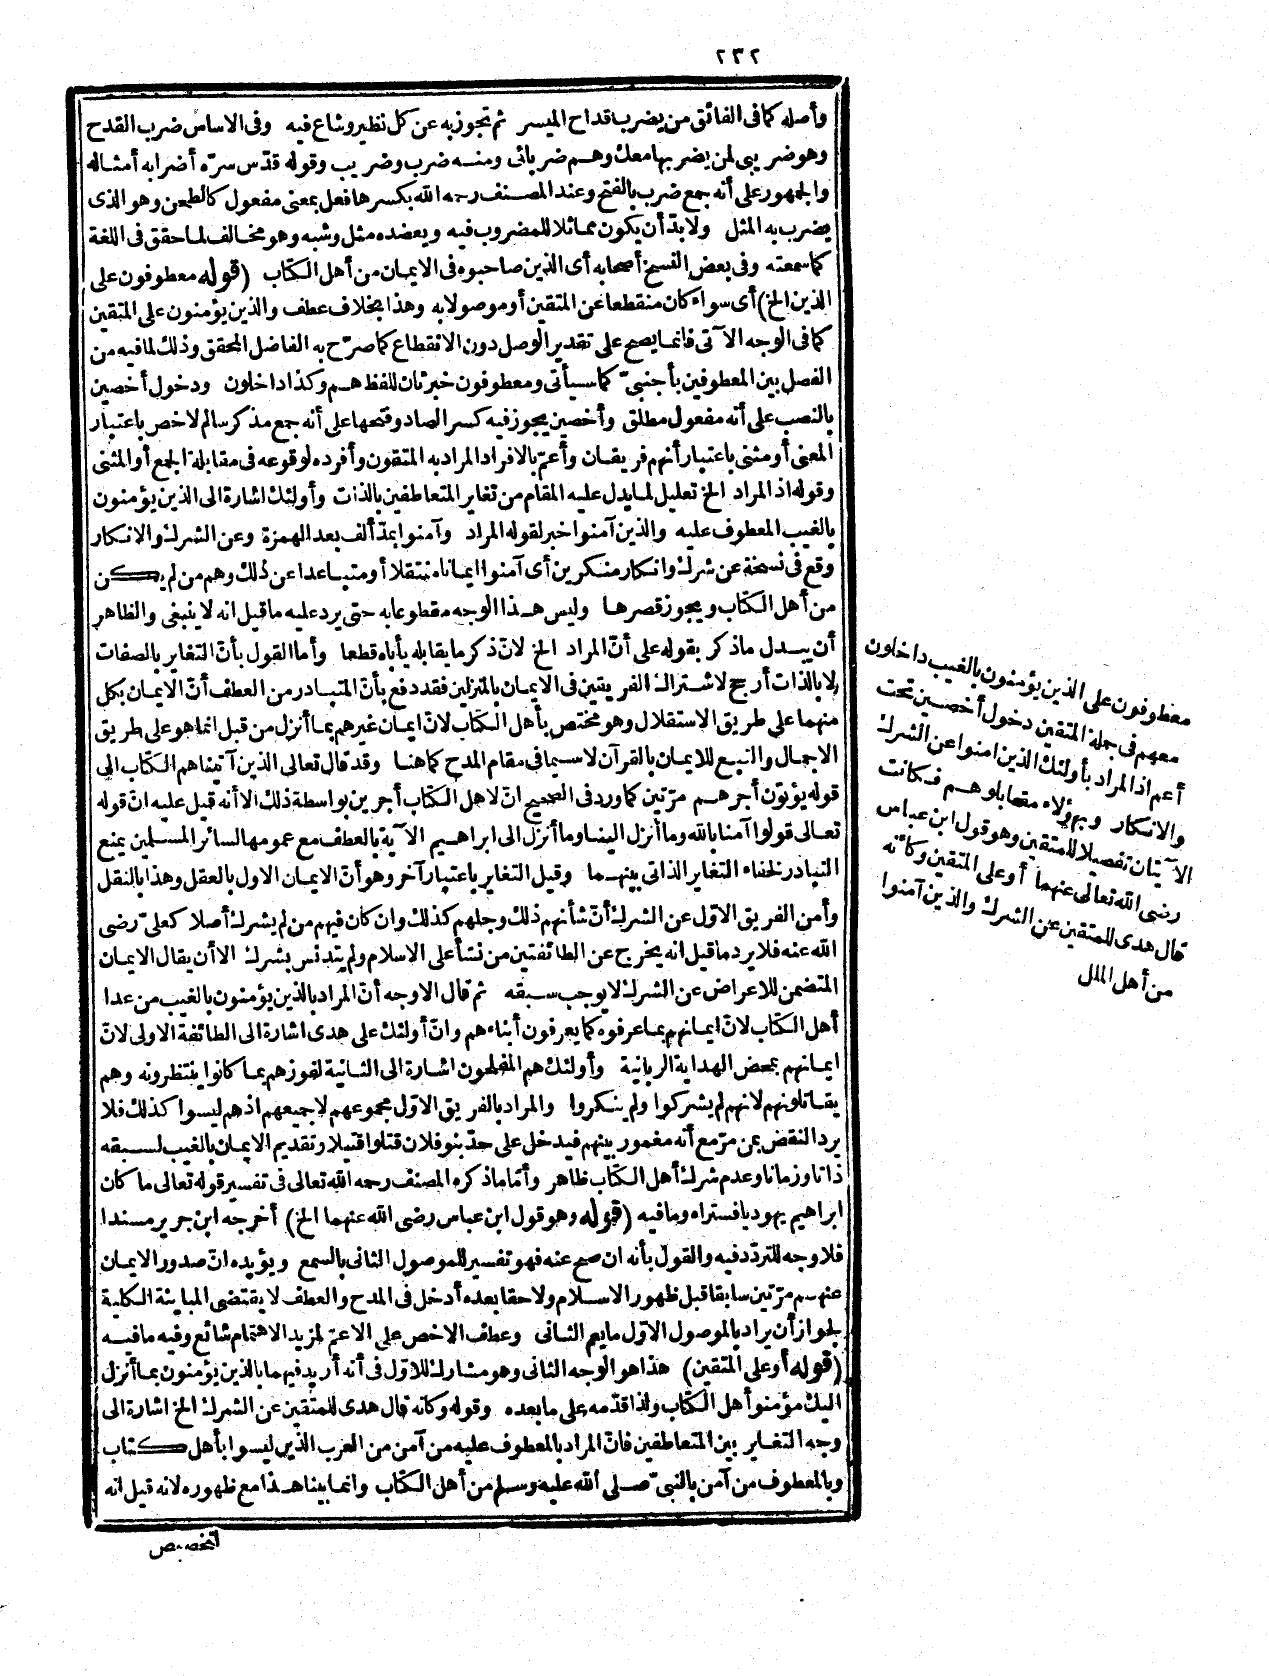 ٢٣٢
وأصله كما فى الفائق من يضرب قداح الميسر ثم تجوز به عن كل نظير وشاع فيه وفى الاساس ضرب القدح
وهو ضريبى لمن يضربها معك وهم ضربائى ومنه ضرب وضريب وقوله قدّس سرّه أضرابه أمثاله
والجمهور على أنه جمع ضرب بالفتح وعند المصنف رحمه الله بكسرها فعل بمعنى مفعول كالطعن وهو الذى
يضرب به المثل ولا بدّ أن يكون مماثلا للمضروب فيه ويعضده مثل وشبه وهو مخالف لما حقق فى اللغة
كما سمعته وفى بعض النسخ أصحابه أى الذين صاحبوه فى الايمان من أهل الكتاب (قوله معطوفون على
الذين الخ) أى سواء كان منقطعا عن المتقين أو موصولا به وهذا بخلاف عطف والذين يؤمنون على المتقين
كما فى الوجه الآتى فانما يصح على تقدير الوصل دون الانقطاع كما صرّح به الفاضل المحقق وذلك لما فيه من
الفصل بين المعطوفين بأجنبىّ كما سيأتى ومعطوفون خبر ثان للفظ هم وكذا داخلون ودخول أخصين
بالنصب على أنه مفعول مطلق وأخصين يجوز فيه كسر الصاد وفتحها على أنه جمع مذكر سالم لاخص باعتبار
المعنى أو مثنى باعتبار أنهم فريقان وأعمّ بالافراد المراد به المتقون وأفرده لوقوعه فى مقابلة الجمع أو المثنى
وقوله اذ المراد الخ تعليل لما يدل عليه المقام من تغاير المتعاطفين بالذات وأولئك اشارة الى الذين يؤمنون
بالغيب المعطوف عليه والذين آمنوا خبر لقوله المراد وآمنوا بمدّ ألف بعد الهمزة وعن الشرك والانكار
وقع فى نسخة عن شرك وانكار منكرين أى آمنوا ايمانا منتقلا أو متباعدا عن ذلك وهم من لم يكن
من أهل الكتاب ويجوز قصرها وليس هذا الوجه مقطوعا به حتى يرد عليه ما قيل انه لا ينبغى والظاهر
أن يبدل ما ذكر بقوله على أنّ المراد الخ لانّ ذكر ما يقابله يأباه قطعا وأما القول بأنّ التغاير بالصفات
لا بالذات أرجح لاشتراك الفريقين فى الايمان بالمنزلين فقد دفع بأنّ المتبادر من العطف أنّ الايمان بكل
منهما على طريق الاستقلال وهو مختص بأهل الكتاب لانّ ايمان غيرهم بما أنزل من قبل انما هو على طريق
الاجمال والتبع للايمان بالقرآن لا سيما فى مقام المدح كما هنا وقد قال تعالى الذين آتيناهم الكتاب الى
قوله يؤتون أجرهم مرّتين كما ورد فى الصحيح انّ لاهل الكتاب أجرين بواسطة ذلك الا أنه قيل عليه انّ قوله
تعالى قولوا آمنا بالله وما أنزل الينا وما أنزل الى ابراهيم الآية بالعطف مع عمومها لسائر المسلمين يمنع
التبادر لخفاء التغاير الذاتى بينهما وقيل التغاير باعتبار آخر وهو أنّ الايمان الاول بالعقل وهذا بالنقل
وأمن الفريق الاوّل عن الشرك أنّ شأنهم ذلك وجلهم كذلك وان كان فيهم من لم يشرك أصلا كعلىّ رضى
الله عنه فلا يرد ما قيل انه يخرج عن الطائفتين من نشأ على الاسلام ولم يتدنس بشرك الا أن يقال الايمان
المتضمن للاعراض عن الشرك لا يوجب سبقه ثم قال الاوجه أنّ المراد بالذين يؤمنون بالغيب من عدا
أهل الكتاب لانّ ايمانهم بما عرفوه كما يعرفون أبناءهم وانّ أولئك على هدى اشارة الى الطائفة الاولى لانّ
ايمانهم بمحض الهداية الربانية وأولئك هم المفلحون اشارة الى الثانية لفوزهم بما كانوا ينتظرونه وهم
يقاتلونهم لانهم لم يشركوا ولم ينكروا والمراد بالفريق الاوّل مجموعهم لا جميعهم اذ هم ليسوا كذلك فلا
يرد النقض بمن مرّ مع أنه مغمور بينهم فيدخل على حدّ بنو فلان قتلوا قتيلا وتقديم الايمان بالغيب لسبقه
ذاتا وزمانا وعدم شرك أهل الكتاب ظاهر وأمّا ما ذكره المصنف رحمه الله تعالى فى تفسير قوله تعالى ما كان
ابراهيم يهوديا فستراه وما فيه (قوله وهو قول ابن عباس رضى الله عنهما الخ) أخرجه ابن جرير مسندا
فلا وجه للتردّد فيه والقول بأنه ان صح عنه فهو تفسير للموصول الثانى بالسمع ويؤيده انّ صدور الايمان
عنهم مرّتين سابقا قبل ظهور الاسلام ولاحقا بعده أدخل فى المدح والعطف لا يقتضى المباينة الكلية
لجواز أن يراد بالموصول الاوّل ما يعم الثانى وعطف الاخص على الاعمّ لمزيد الاهتمام شائع وفيه ما فيه
(قوله أو على المتقين) هذا هو الوجه الثانى وهو مشارك للاوّل فى أنه أريد فيهما بالذين يؤمنون بما أنزل
اليك مؤمنو أهل الكتاب ولذا قدّمه على ما بعده وقوله وكانّه قال هدى للمتقين عن الشرك الخ اشارة الى
وجه التغاير بين المتعاطفين فانّ المراد بالمعطوف عليه من آمن من العرب الذين ليسوا بأهل كتاب
وبالمعطوف من آمن بالنبىّ صلى الله عليه وسلم من أهل الكتاب وانما بينا هذا مع ظهوره لانه قيل انه
تخصيص
معطوفون على الذين يؤمنون بالغيب داخلون
معهم فى جملة المتقين دخول أخصين تحت
أعم اذ المراد بأولئك الذين امنوا عن الشرك
والانكار وبهؤلاء مقابلوهم فكانت
الآيتان تفصيلا للمتقين وهو قول ابن عباس
رضى الله تعالى عنهما أو على المتقين وكانّه
قال هدى للمتقين عن الشرك والذين آمنوا
من أهل الملل